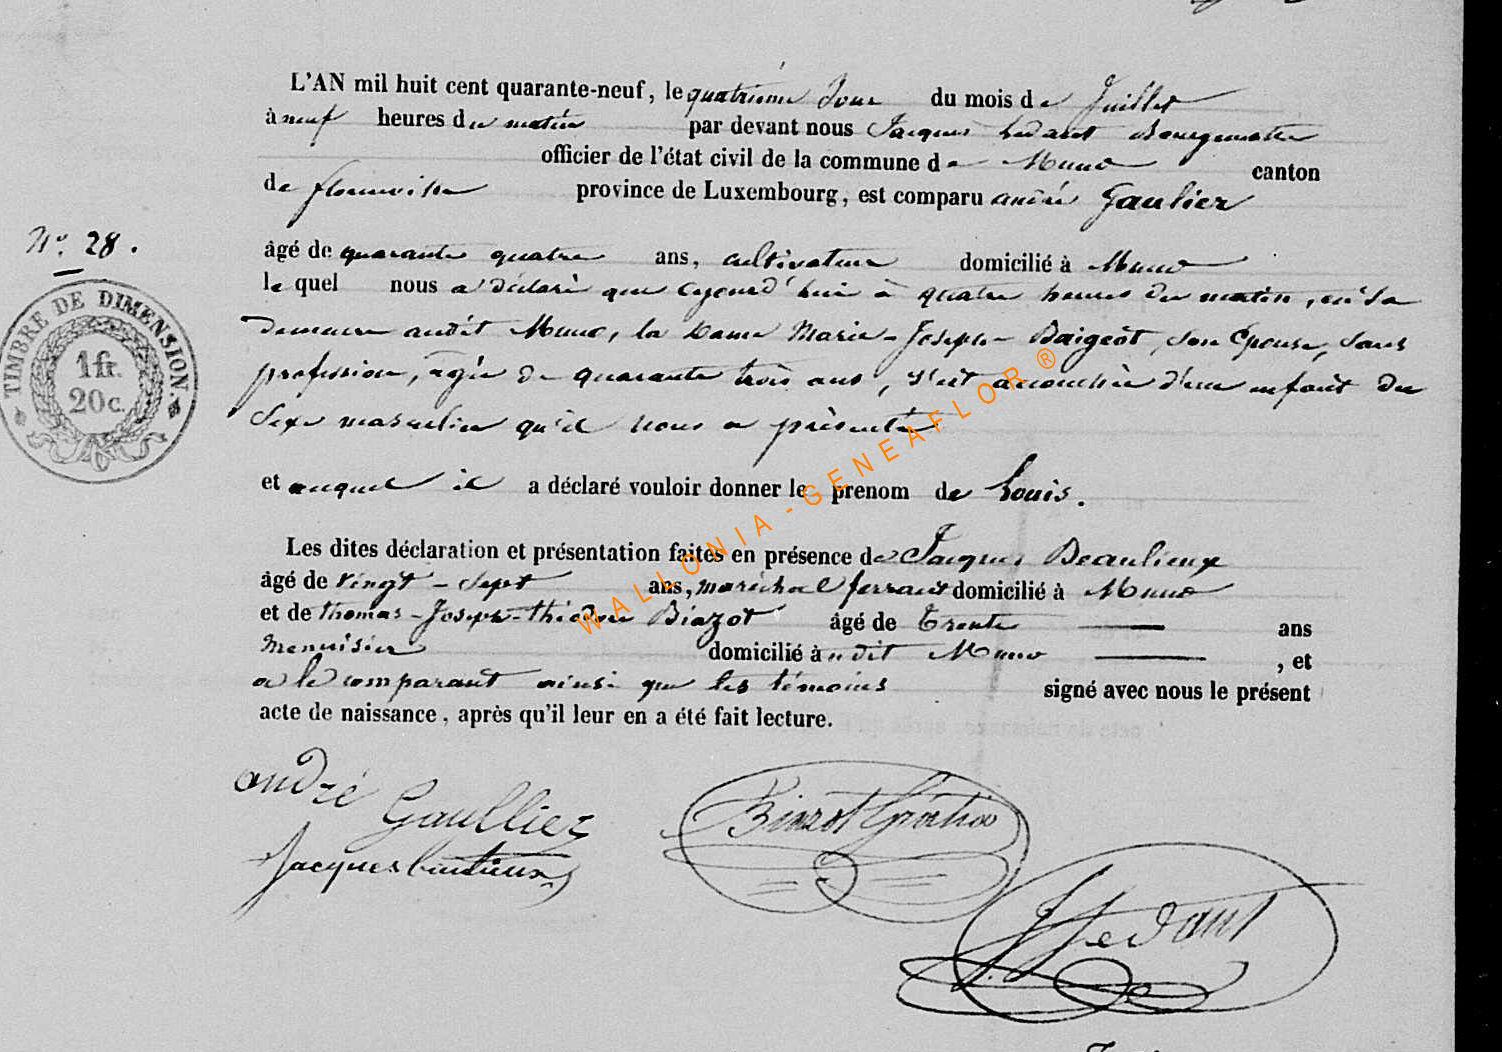 L'AN mil huit cent quarante-neuf, le quatrième Jour du mois de Juillet
à neuf heures du matin par devant nous Jacques Ledant Bourgmestre
officier de l'état civil de la commune de Muno canton
de florenville province de Luxembourg, est comparu andré Gaulier
N° 28.
âgé de quarante quatre ans, cultivateur domicilié à Muno
le quel nous a déclaré que aujourd'hui à quatre heures du matin, en sa
demeure audit Muno, la Dame Marie-Joseph- Baigeot, son Epouse, sans
profession, agée de quarante trois ans, s'est accouchée d'un enfant du
Sexe masculin qu'il nous a présenté
et auquel il a déclaré vouloir donner le prenom de Louis.
Les dites déclaration et présentation faites en présence de Jacques Beaulieux
âgé de vingt-sept ans, maréchal ferrant domicilié à Muno
et de thomas-Joseph-thiodore Biazot âgé de Trente ans
Menuisier domicilié audit Muno, et
a le comparant ainsi que les témoins signé avec nous le présent
acte de naissance, après qu'il leur en a été fait lecture.
andré Gaulliez
Jacques
Biazot
J Ledant
TIMBRE DE DIMENSION.
1 fr.
20 c.
WALLONIA - GENEAFLOR ®